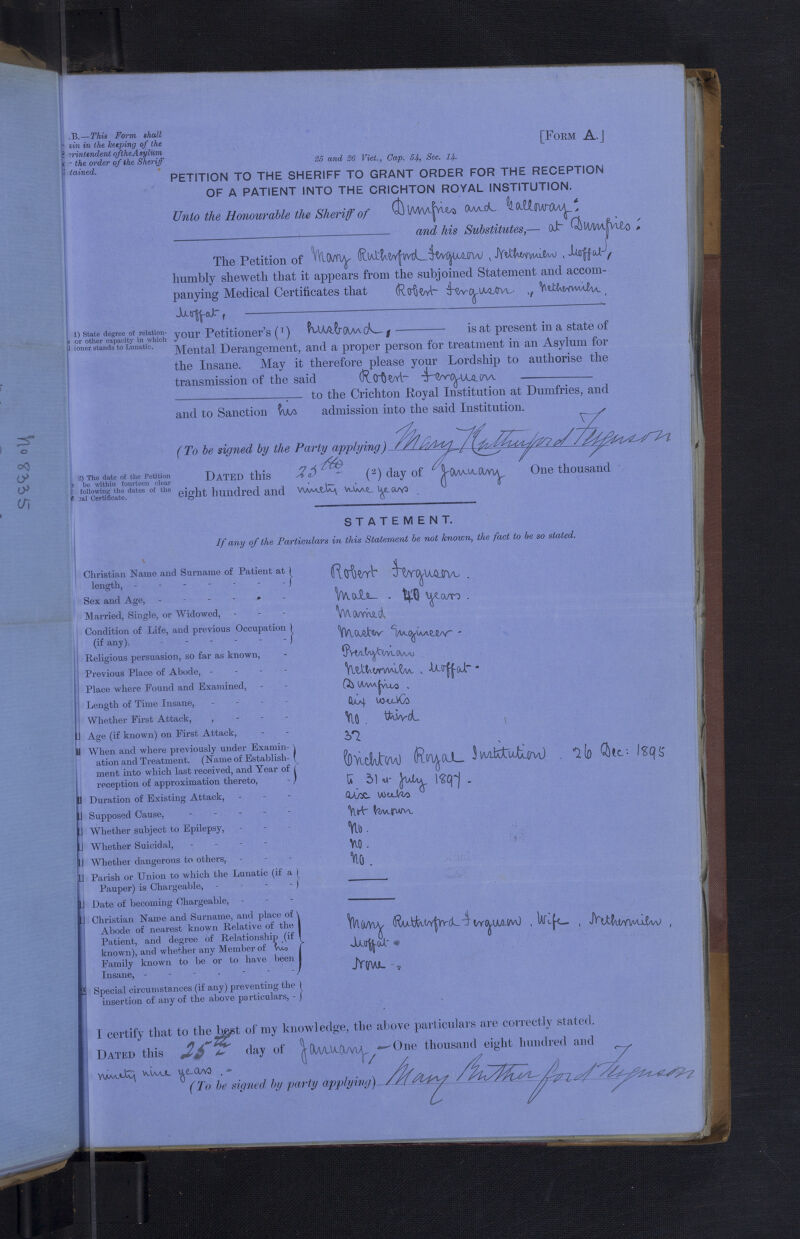 .B.—This Form shall
ain in the keeping of the
erintendent of the Asylum
the order of the Sheriff
tained.
[FORM A.]
25 and 26 Vict., Cap. 54, Sec. 14.
PETITION TO THE SHERIFF TO GRANT ORDER FOR THE RECEPTION
OF A PATIENT INTO THE CRICHTON ROYAL INSTITUTION.
Unto the Honourable the Sheriff of Dumfries and Galloway:
and his Substitutes,— at Dumfries:
The Petition of Mary Rutherford Ferguson, Nethermiln, Moffat,
humbly sheweth that it appears from the subjoined Statement and accom-
panying Medical Certificates that Robert Ferguson, Nethermiln,
Moffat,
1) State degree of relation-
or other capacity in which
ioner stands to Lunatic.
your Petitioner's (1) husband, is at present in a state of
Mental Derangement, and a proper person for treatment in an Asylum for
the Insane. May it therefore please your Lordship to authorise the
transmission of the said Robert Ferguson
to the Crichton Royal Institution at Dumfries, and
and to Sanction his admission into the said Institution.
(To be signed by the Party applying) Mary Rutherford Ferguson
2) The date of the Petition
be within fourteen clear
following the dates of the
cal Certificate.
DATED this 25th (2) day of January One thousand
eight hundred and ninety nine years.
No 8335
STATEMENT.
If any of the Particulars in this Statement be not known, the fact to be so stated.
Christian Name and Surname of Patient at
length, - Robert Ferguson.
Sex and Age, - Male. 40 years.
Married, Single, or Widowed, - Married
Condition of Life, and previous Occupation
(if any). - Master Engineer -
Religious persuasion, so far as known, - Presbyterian
Previous Place of Abode, - Nethermiln, Moffat -
Place where Found and Examined, - Dumfries.
Length of Time Insane, - Six weeks
Whether First Attack, - No. third
Age (if known) on First Attack, - 37
When and where previously under Examin-
ation and Treatment. (Name of Establish-
ment into which last received, and Year of
reception of approximation thereto, -
Crichton Royal Institution. 26 Dec: 1895
to 31st July 1897.
Duration of Existing Attack, - Six weeks
Supposed Cause, - Not known
Whether subject to Epilepsy, - No.
Whether Suicidal, - No.
Whether dangerous to others, - No.
Parish or Union to which the Lunatic (if a
Pauper) is Chargeable, -
Date of becoming Chargeable, -
Christian Name and Surname, and place of
Abode of nearest known Relative of the
Patient, and degree of Relationship (if
known), and whether any Member of his
Family known to be or to have been
Insane, -
Mary Rutherford Ferguson, Wife, Nethermiln,
Moffat -
None -
Special circumstances (if any) preventing the
insertion of any of the above particulars, -
I certify that to the best of my knowledge, the above particulars are correctly stated.
DATED this 25th day of January,—One thousand eight hundred and
ninety nine years. -
(To be signed by party applying) Mary Rutherford Ferguson